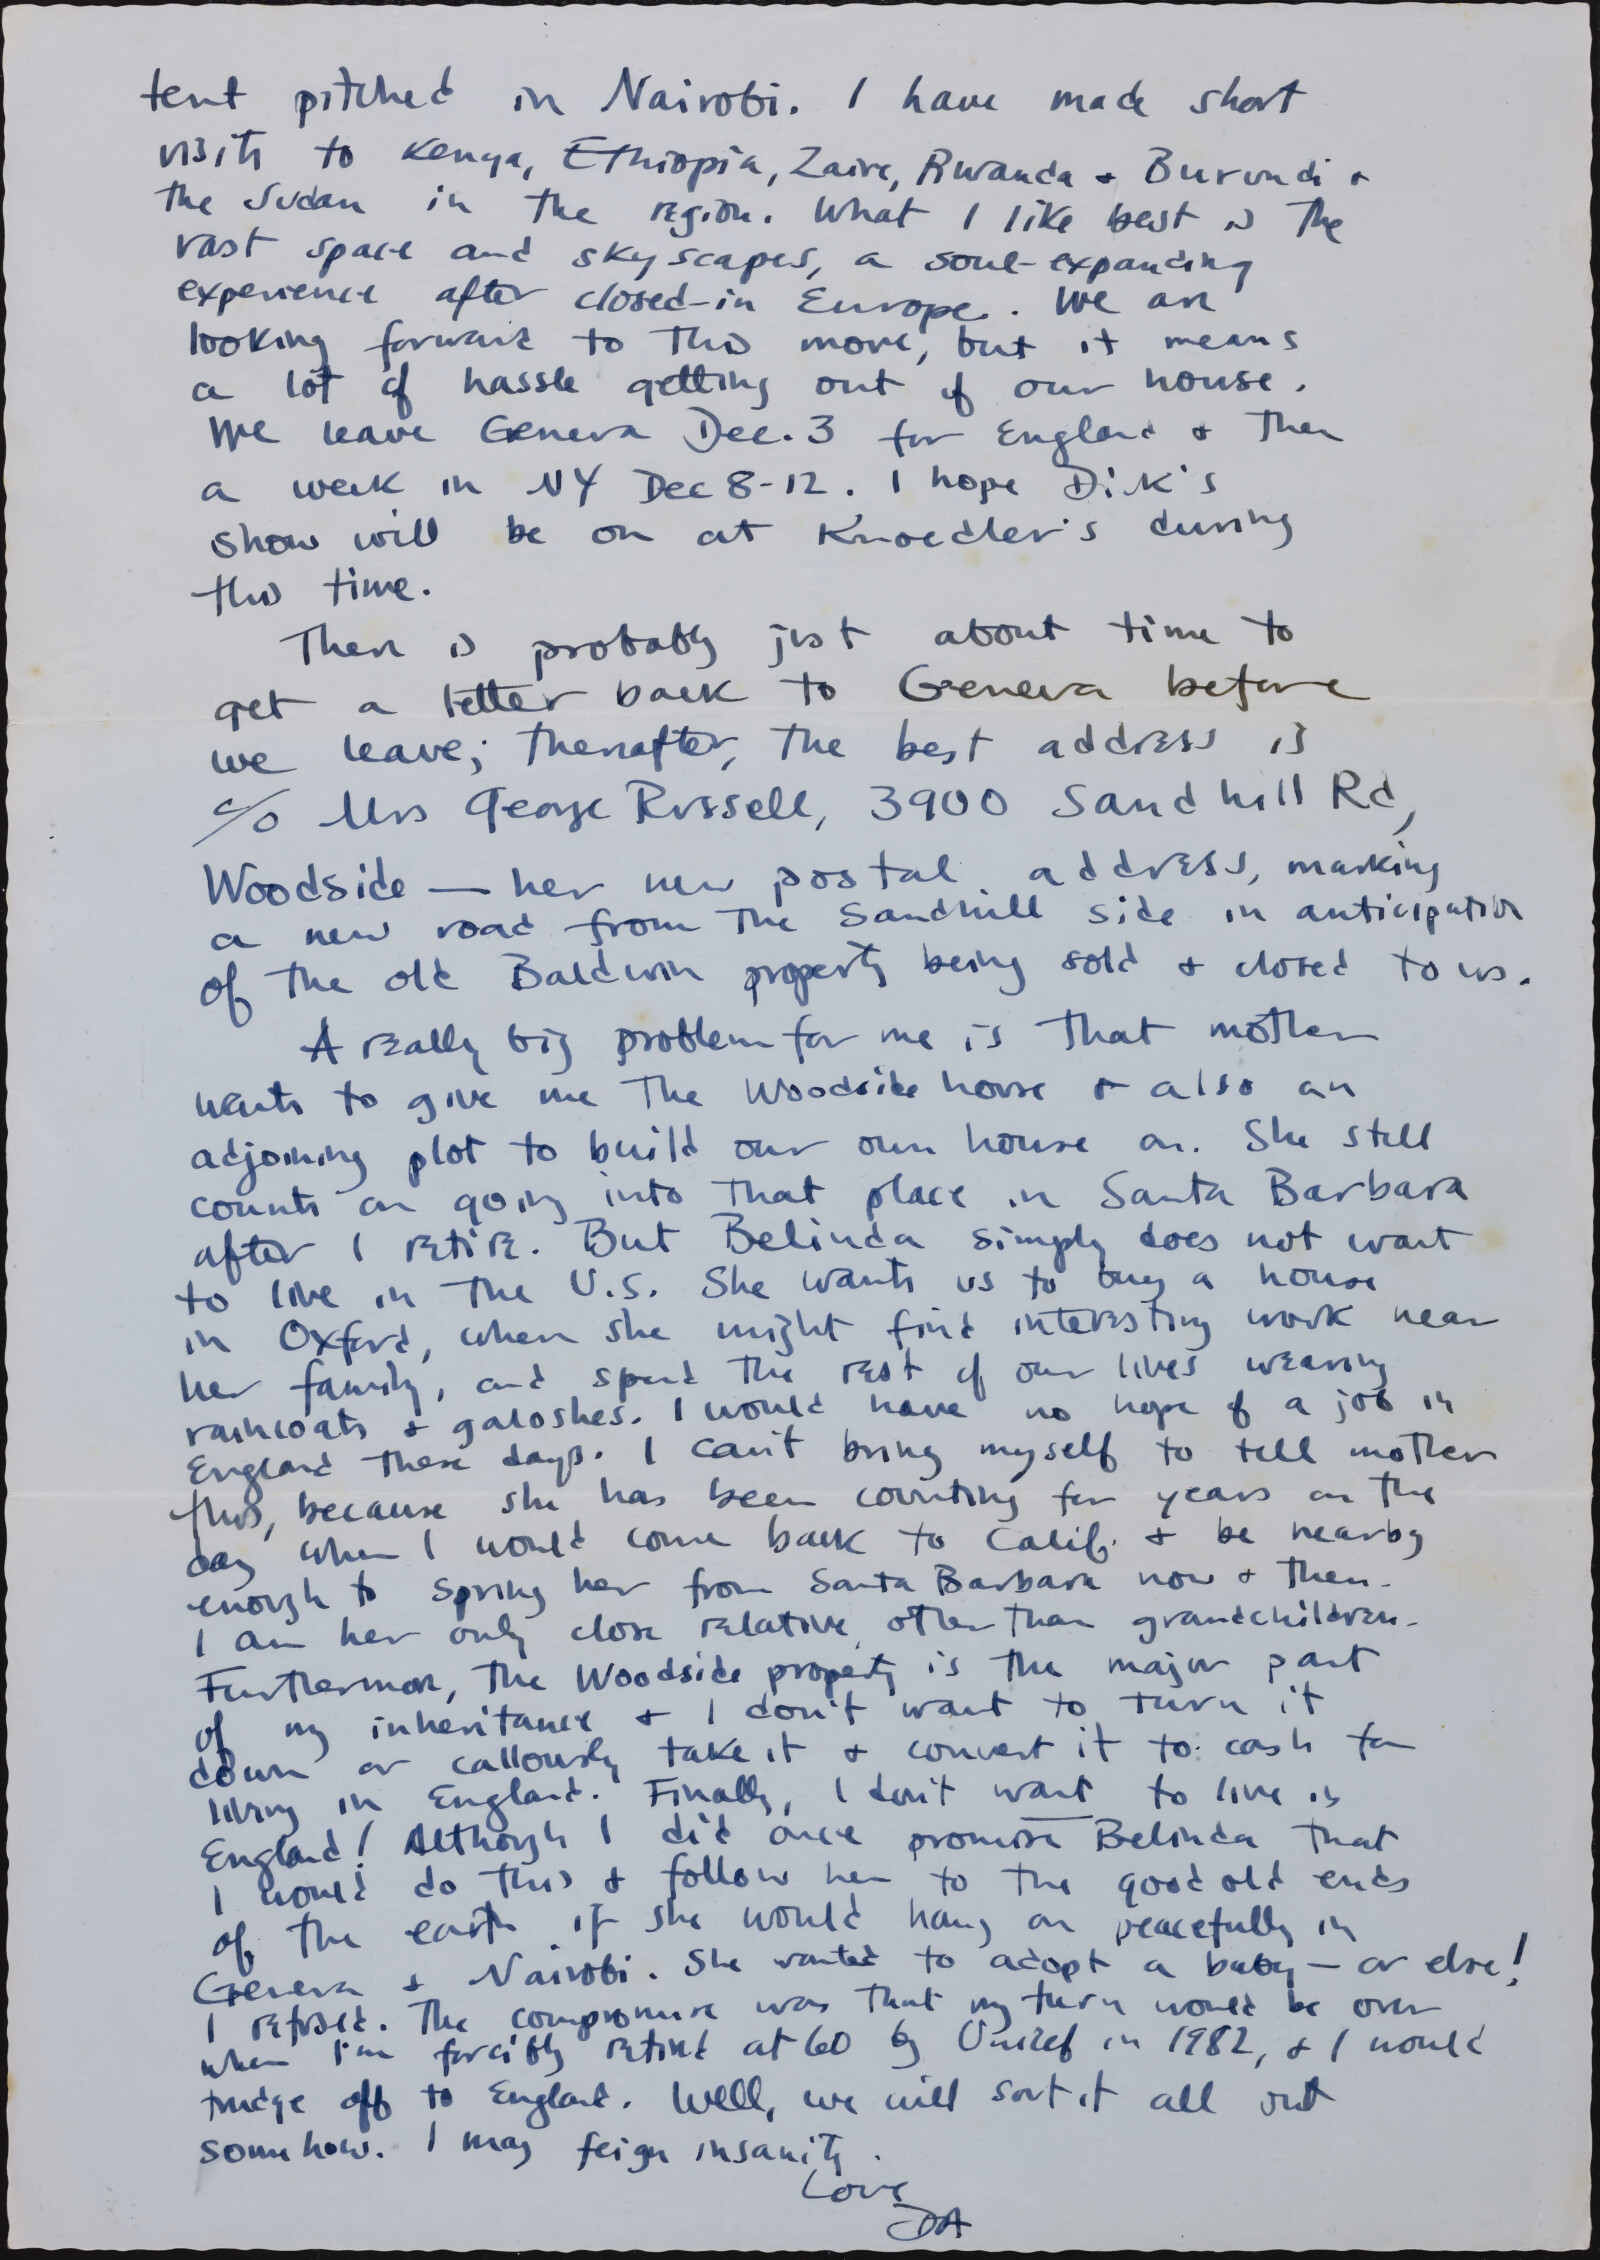 tent pitched in Nairobi. I have made short
visits to Kenya, Ethiopia, Zaire, Rwanda + Burundi +
the Sudan in the region. What I like best is the
vast space and skyscapes, a soul-expanding
experience after closed-in Europe. We are
looking forward to this move, but it means
a lot of hassle getting out of our house.
We leave Geneva Dec. 3 for England + then
a week in NY Dec 8-12. I hope Dick's
show will be on at Knoedler's during
this time.
There is probably just about time to
get a letter back to Geneva before
we leave; thereafter, the best address is
c/o Mrs George Russell, 3900 Sandhill Rd,
Woodside — her new postal address, marking
a new road from the Sandhill side in anticipation
of the old Baldwin property being sold + closed to us.
A really big problem for me is that mother
wants to give me the Woodside house + also an
adjoining plot to build our own house on. She still
counts on going into that place in Santa Barbara
after I retire. But Belinda simply does not want
to live in the U.S. She wants us to buy a house
in Oxford, where she might find interesting work near
her family, and spend the rest of our lives wearing
raincoats + galoshes. I would have no hope of a job in
England these days. I can't bring myself to tell mother
this, because she has been counting for years on the
day when I would come back to Calif. + be nearby
enough to spring her from Santa Barbara now + then.
I am her only close relative other than grandchildren.
Furthermore, the Woodside property is the major part
of my inheritance + I don't want to turn it
down or callously take it + convert it to cash for
living in England. Finally, I don't want to live in
England! Although I did once promise Belinda that
I would do this + follow her to the good old ends
of the earth if she would hang on peacefully in
Geneva + Nairobi. She wanted to adopt a baby — or else!
I refused. The compromise was that my turn would be over
when I'm forcibly retired at 60 by Unicef in 1982, + I would
trudge off to England. Well, we will sort it all out
somehow. I may feign insanity.
Love